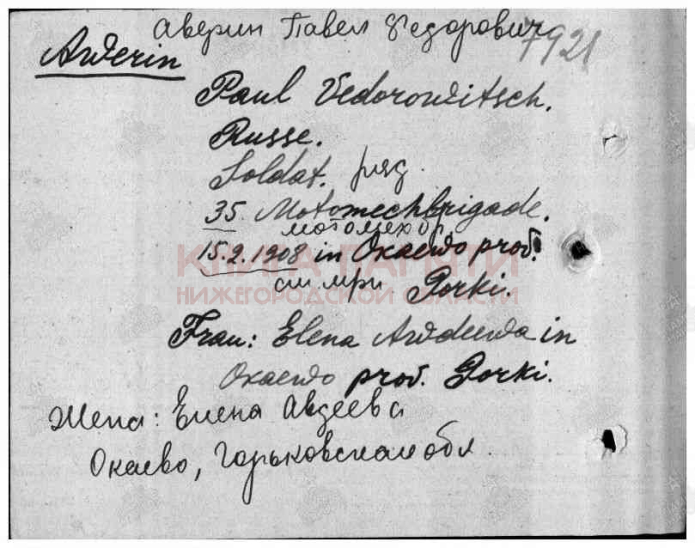 Аверин Павел Федорович
7921
Awerin
Paul Vedorowitsch.
Russe.
Soldat. ряд.
35. Motomechbrigade.
мотомехбр.
15.2.1908 in Okaewo prov.
КНИГА ПАМЯТИ
Gorki.
НИЖЕГОРОДСКОЙ ОБЛАСТИ
Frau: Elena Awdeewa in
Okaewo prov. Gorki.
Жена: Елена Авдеева
Окаево, Горьковская обл.